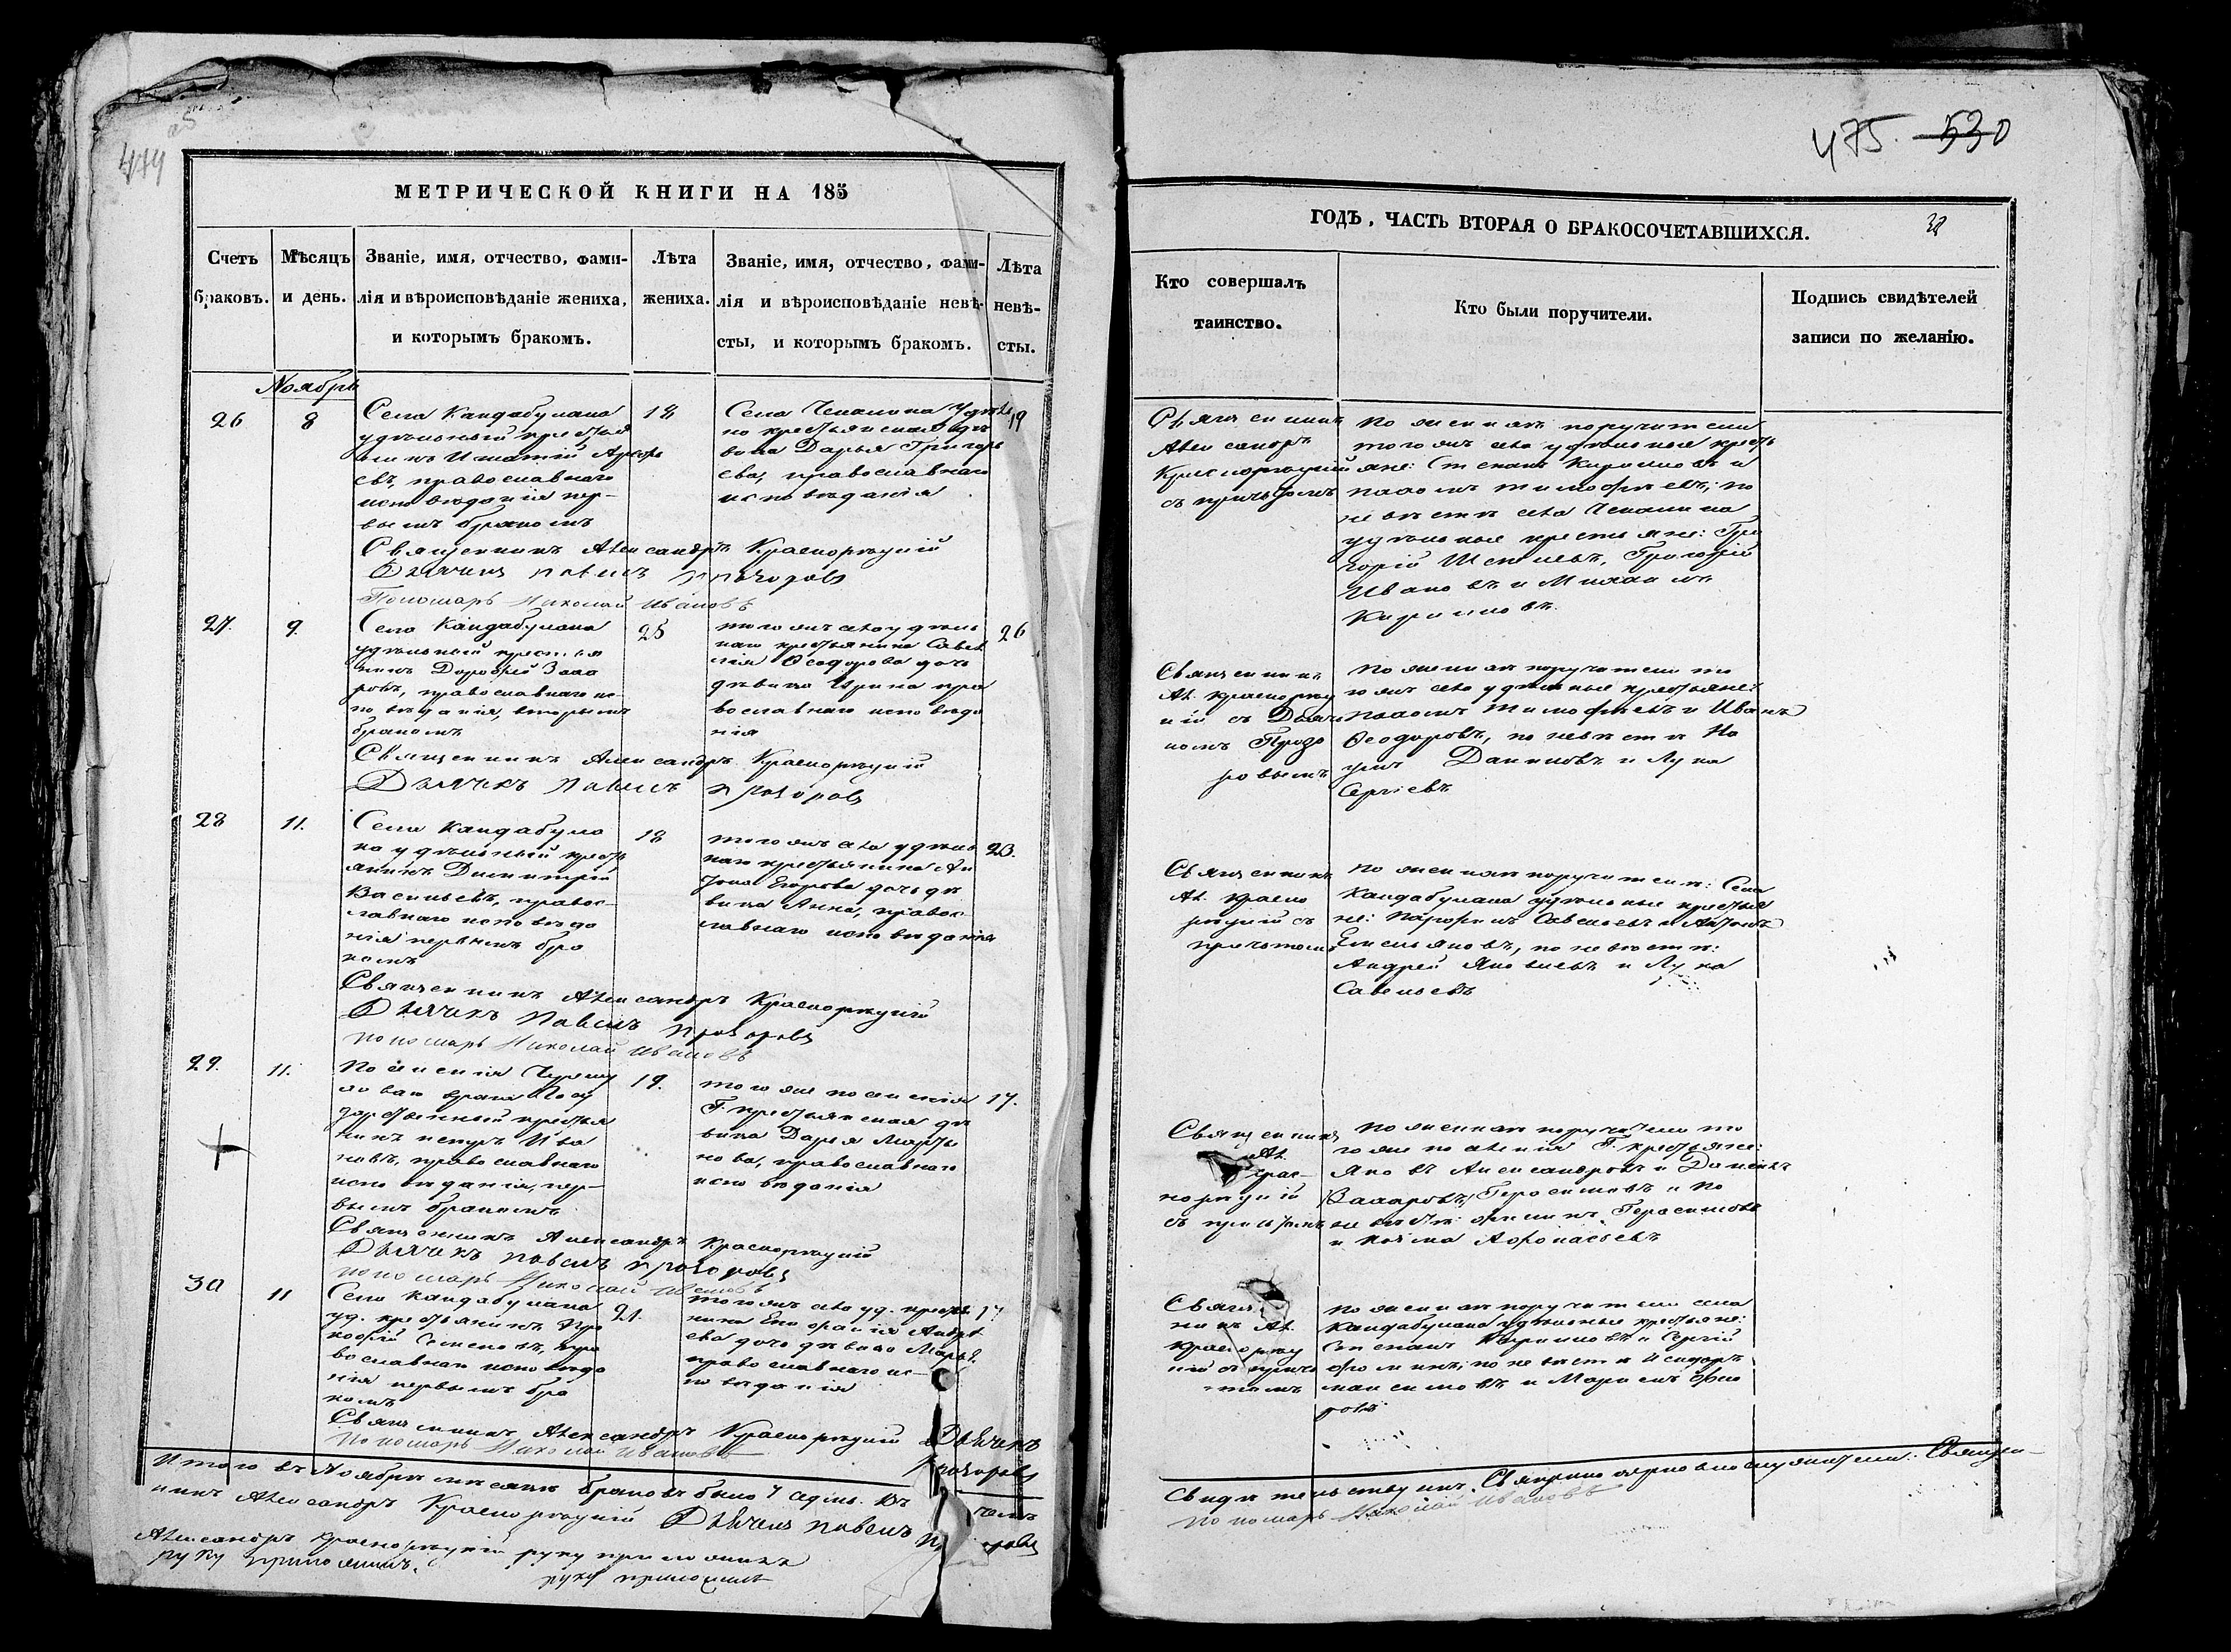 474
МЕТРИЧЕСКОЙ КНИГИ НА 185
Счетъ браковъ.
Мѣсяцъ и день.
Званіе, имя, отчество, фами-
лія и вѣроисповѣданіе жениха,
и которымъ бракомъ.
Лѣта
жениха.
Званіе, имя, отчество, фами-
лія и вѣроисповѣданіе невѣ-
сты, и которымъ бракомъ.
Лѣта
невѣ-
сты.
Ноябрь
26
8
Села Кандабулака
удѣльный крестья
нинъ Игнатій
евъ, православнаго
исповѣданія пер-
вымъ бракомъ
18
Села Чекалина Удѣль
но крестьянская дѣ
вица Дарья Григорь
ева, православнаго
исповѣданія
19
Священникъ Александръ Краснорѣцкій
Дьячекъ Павелъ Прозоровъ
Пономарь Николай Ивановъ
27.
9.
Села Кандабулака
удѣльный крестья
нинъ Дорофей Заха
ровъ, православнаго ис-
повѣданія, вторымъ
бракомъ
25
того жъ села удѣль
наго крестьянина Савел
лія Ѳеодорова дочь
дѣвица Ирина пра
вославнаго исповѣда
нія
26
Священникъ Александръ Краснорѣцкій
Дьячекъ Павелъ Прозоровъ
28
11.
Села Кандабула
ка удѣльный кресть
янинъ Димитрій
Васильевъ, правос-
лавнаго исповѣда
нія первымъ бра
комъ
18
того жъ села удѣль
наго крестьянина Ан
тона Егорова дочь дѣ
вица Анна, правос-
лавнаго исповѣданія
23.
Священникъ Александръ Краснорѣцкій
Дьячекъ Павелъ Прозоровъ
Пономарь Николай Ивановъ
29.
11.
Поселенія
Госу
дарственный крестья
нинъ Петръ Ива
новъ, православнаго
исповѣданія, пер-
вымъ бракомъ
19.
того же поселенія
Г. крестьянская дѣ
вица Дарья Марты
нова, православнаго
исповѣданія
17.
Священникъ Александръ Краснорѣцкій
Дьячекъ Павелъ Прозоровъ
Пономарь Николай Ивановъ
30
11
Села Кандабулака
уд. крестьянинъ Про
кофій Семеновъ, пра
вославнаго исповѣда
нія первымъ бра
комъ
21.
того жъ села уд. крестья
нина Андре
ева дочь дѣвица Марья
православнаго ис-
повѣданія
Священникъ Александръ Краснорѣцкій Дьячекъ
Пономарь Николай Ивановъ Прозоровъ
Итого въ Ноябрѣ мѣсяцѣ браковъ было 7 седмь. Въ чемъ
475. 530
ГОДЪ, ЧАСТЬ ВТОРАЯ О БРАКОСОЧЕТАВШИХСЯ.
Кто совершалъ
таинство.
Кто были поручители.
Подпись свидѣтелей
записи по желанію.
Священникъ
Александръ
Краснорѣцкій
съ причтомъ
По женихѣ поручители
того жъ села удѣльные кресть
яне: Степанъ Кириловъ и
Пахомъ Тимофѣевъ; по
невѣстѣ села Чекалина
удѣльные крестьяне: Гри
горій Григорій
Ивановъ и Михаилъ
Кириловъ.
Священникъ
Ал. Краснорѣц
кій съ Дьяч
комъ Прозо
ровымъ
По женихѣ поручители то
го жъ села удѣльные крестьяне:
Пахомъ Тимофѣевъ и Иванъ
Ѳеодоровъ, по невѣстѣ На
умъ Даниловъ и Лука
Сергѣевъ
Священникъ
Ал. Красно
рѣцкій съ
причтомъ
По женихѣ поручители: Села
Кандабулака удѣльные крестья
не: Парфенъ Савельевъ и Антонъ
Емельяновъ, по невѣстѣ:
Андрей Яковлевъ и Лука
Савельевъ
Священникъ
Ал.
Крас-
норѣцкій
съ причтомъ
По женихѣ поручители то
го же поселенія Г. крестьяне:
Яковъ Александровъ и Данилъ
Захаровъ, Герасимовъ и по
невѣстѣ: Герасимовъ
и Козма Афонасьевъ
Свящ
никъ Ал.
Краснорѣц
кій съ прич
томъ
По женихѣ поручители села
Кандабулака удѣльные крестьяне:
Степанъ Кириловъ и Сергій
Фоминъ; по невѣстѣ Исидоръ
Максимовъ и
ровъ
Свидѣтельствуемъ. Священно церковно служители: Священ-
никъ Александръ Краснорѣцкій Дьячекъ Павелъ Прозоровъ
Пономарь Николай Ивановъ
Александръ Краснорѣцкій руку приложилъ
руку приложилъ.
руку приложилъ